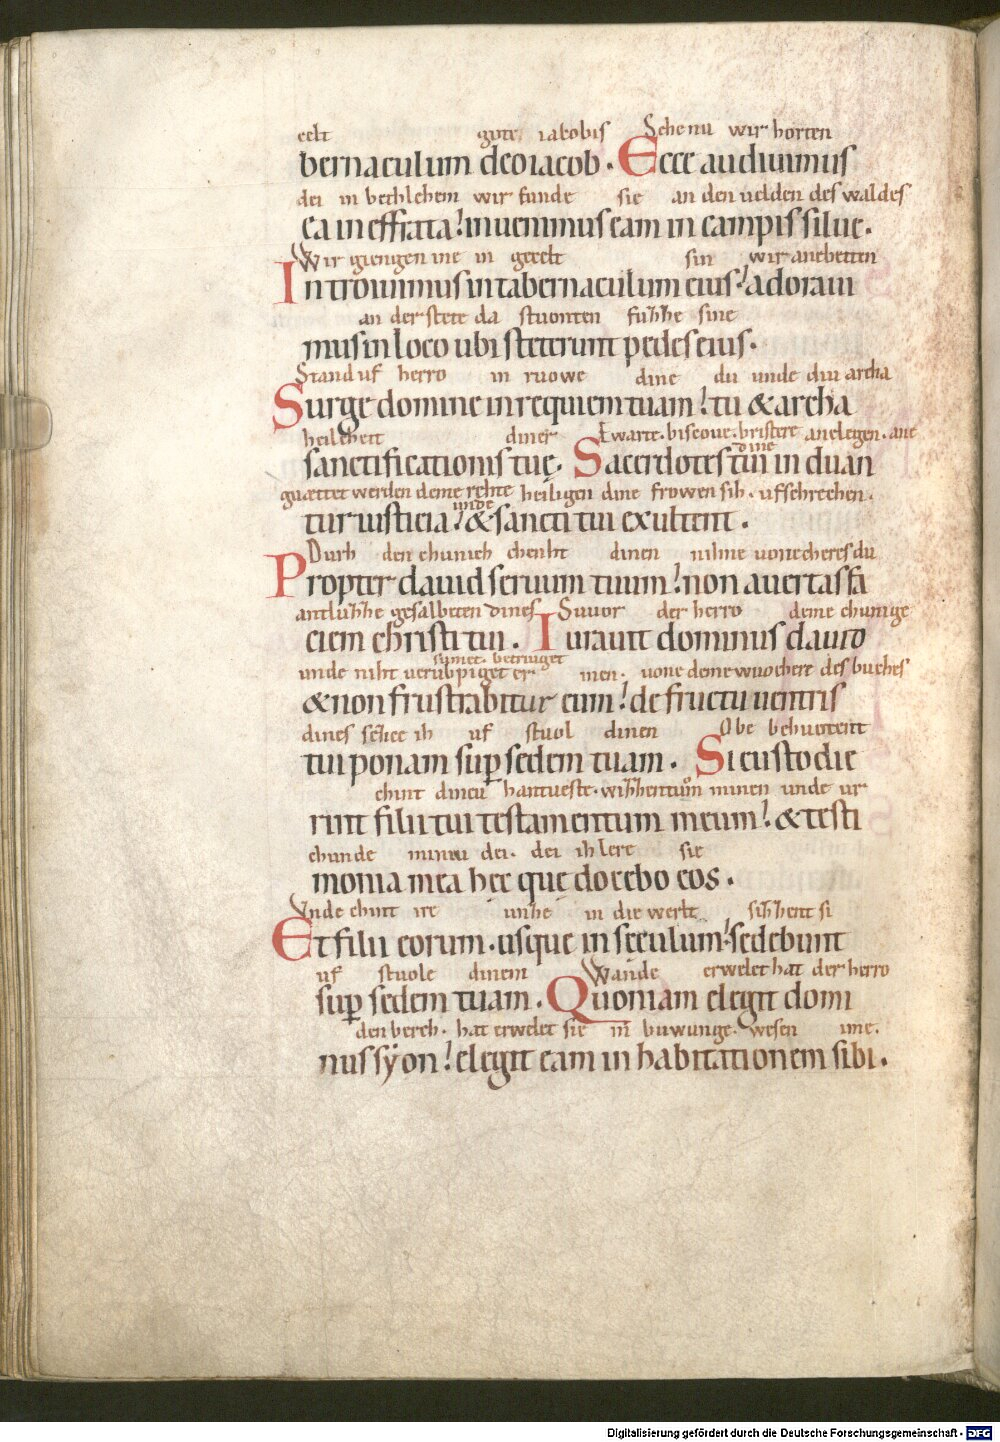 celt gotes iacobis Sehenu wir horten
bernaculum deo iacob. Ecce audiuimus
dei in bethlehem wir funde sie an den uelden des waldes
ea in effrata? inuenimus eam in campis silue.
Wir giengen ine in gecelt sin wir anebetten
Introiuimus in tabernaculum eius? adoraui
an der stete da stuonten fuhhe sine
mus in loco ubi steterunt pedes eius.
Stand uf herro in ruowe dine du unde diu archa
Surge domine in requiem tuam? tu & archa
heilcheit diner Ewarte. biscoue. bristere anelegen. ane
sanctificationis tuę. Sacerdotes tui induan
dine
guættet werden deme rehte heiligen dine frowen sih. ufschrechen.
unde
tur iusticia? & sancti tui exultent.
Durh den chunich chnht dinen nihne uonecheres du
Propter dauid seruum tuum? non auertas fa
antluhhe gesalbeten dines Suuor der herro deme chunige
ciem christi tui. Iurauit dominus dauid
sumet. betriuget
unde niht uerubpiget er inen. uone deme wuochere des buches
& non frustrabitur eum? de fructu uentris
dines setece ih uf stuol dinen Obe behuotent
tui ponam sup sedem tuam. Si custodie
chint dineu hantueste. wihhentuom minen unde ur
rint filii tui testamentum meum? & testi
chunde mineu dei. dei ih lere sie
monia mea hec que docebo eos.
Unde chint ire unhe in die werlt sihhent si
Et filii eorum. usque in seculum? sedebunt
uf stuole dinem Wande erwelet hat der herro
sup sedem tuam. Quoniam elegit domi
den berch. hat erwelet sie in buwunge. wesen ime.
nus syon? elegit eam in habitationem sibi.
Digitalisierung gefördert durch die Deutsche Forschungsgemeinschaft - DFG